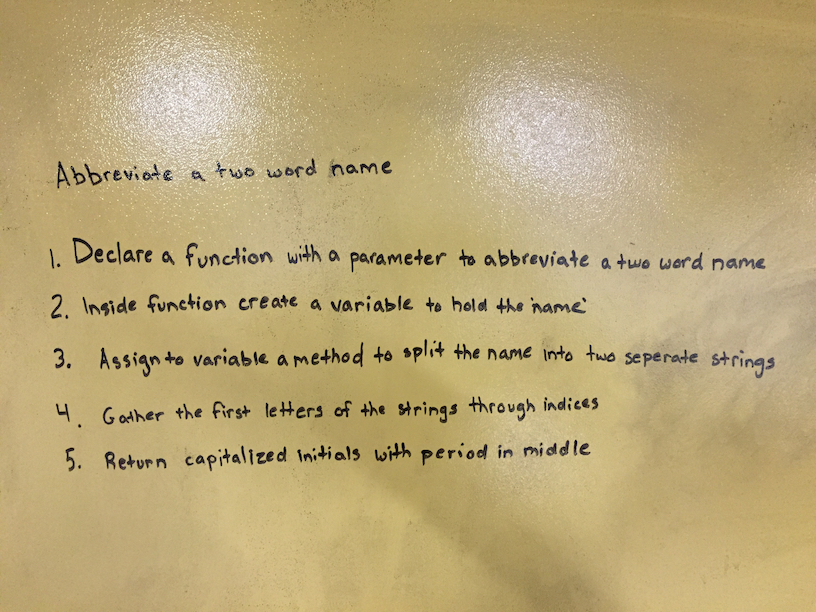 Abbreviate a two word name
1. Declare a function with a parameter to abbreviate a two word name
2. Inside function create a variable to hold the 'name'
3. Assign to variable a method to split the name into two seperate strings
4. Gather the first letters of the strings through indices
5. Return capitalized initials with period in middle